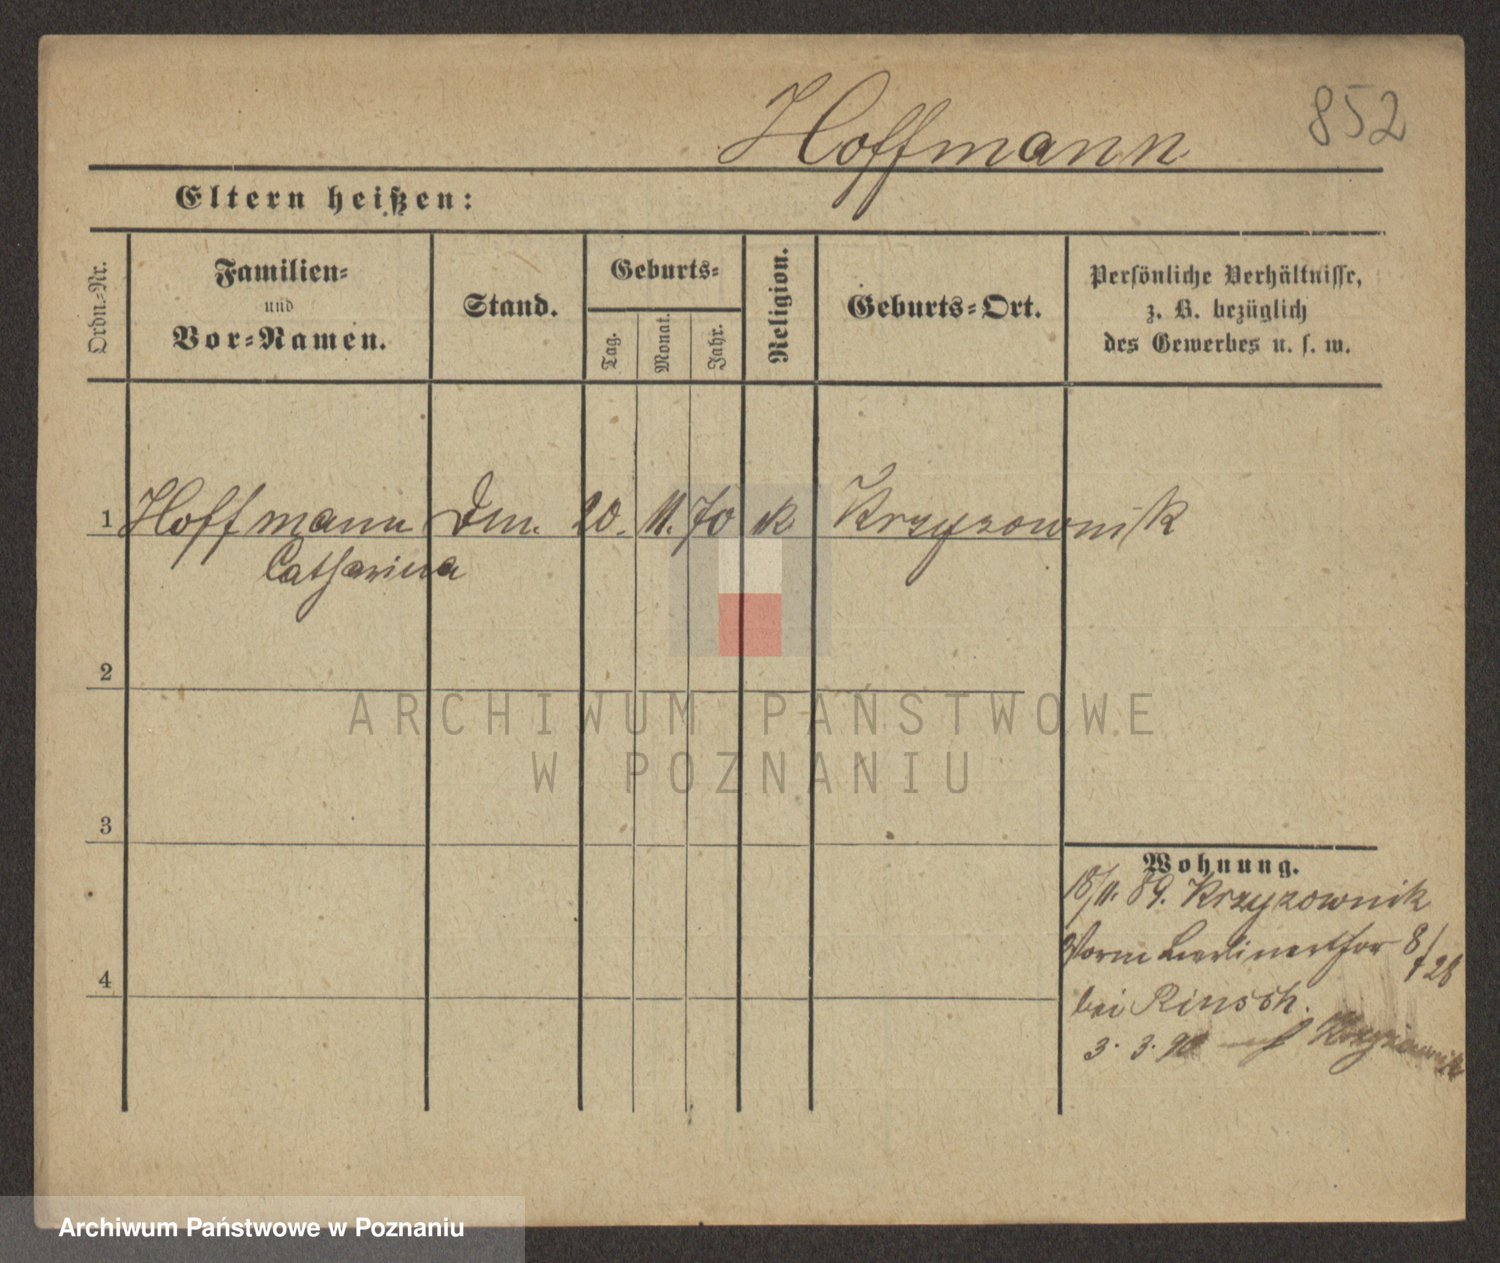 Hoffmann 852
Eltern heißen:
Ordn.-Nr.
Familien-
und
Vor-Namen.
Stand.
Geburts-
Tag.
Monat.
Jahr.
Religion.
Geburts-Ort.
Persönliche Verhältnisse,
z. B. bezüglich
des Gewerbes u. s. w.
1 Hoffmann Dm. 20. 11. 70 k Krzyzownik
Catharina
2
ARCHIWUM PAŃSTWOWE
W POZNANIU
3
Wohnung.
18/11. 89. Krzyzownik
Vorm Berlinerthor 8/
bei Rinsch.
3. 3. 90 Krzyzownik
4
Archiwum Państwowe w Poznaniu